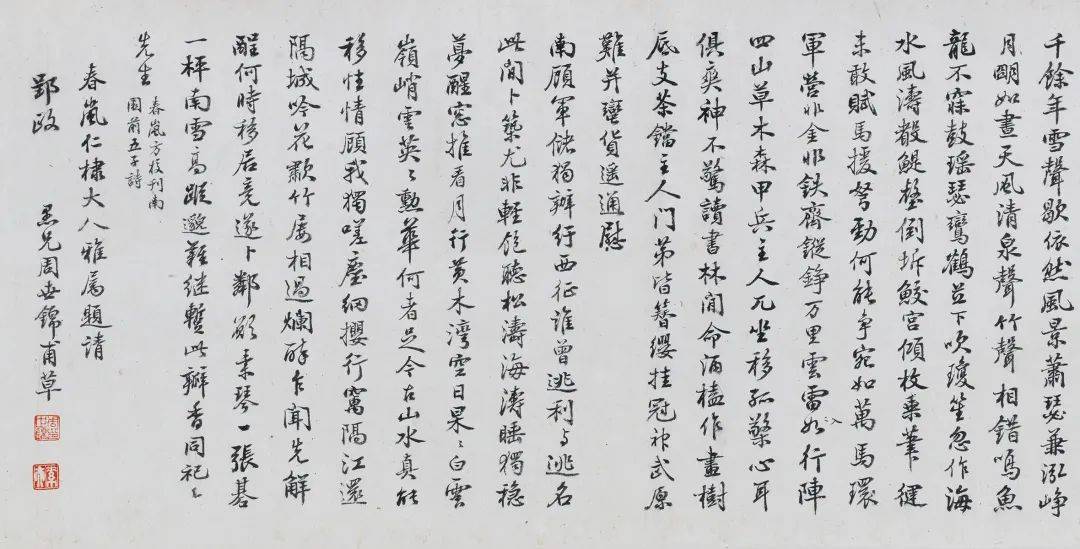 千餘年雪聲歇依然風景蕭瑟兼泓崢
月明如晝天風清泉聲竹聲相錯鳴魚
龍不寐鼓瑶瑟鸞鶴並下吹瓊笙忽作海
水風濤轂鯷壑倒坼鮫宮傾枚乘筆健
未敢賦馬援弩勁何能争宛如萬馬環
軍營非金非鉄齊鏦錚万里雲雷如入行陣
四山草木森甲兵主人兀坐移孤檠心耳
俱爽神不驚讀書林間命酒榼作畫樹
底支茶鐺主人門第皆簪纓挂冠神武原
難并蠻貨遥通慰
南顧軍儲獨辦紆西征誰曾逃利与逃名
此間卜築尤非輕飽聽松濤海濤睡獨穩
夢醒窓推看月行黄木灣空日杲〻白雲
嶺峭雲英〻勲華何者足今古山水真能
移性情顧我獨嗟塵網攖行窩隔江還
隔城吟花顴竹屡相過爛醉乍聞先解
酲何時移居竟遂卜鄰願素琴一張碁
一枰南雪高蹤邈難继暫此瓣香同祀〻
先生
春嵐方校刊南
園前五子詩
春嵐仁棣大人雅屬題請
郢政
愚兄周世錦甫草